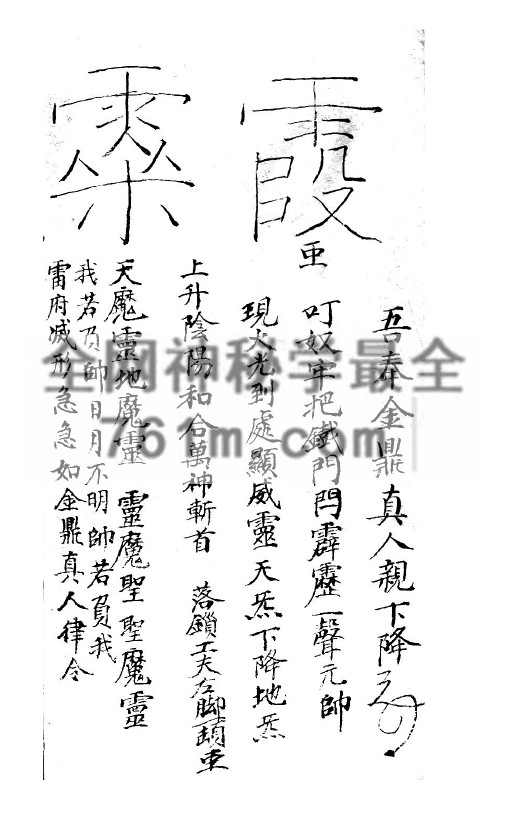 亜
吾奉金鼎真人親下降
叮奴牢把鐵門閂霹靂一聲元帥
現火光到處顯威靈天炁下降地炁
上升陰陽和合萬神斬首 落鎖工夫左脚頭
天魔靈地魔靈 靈魔聖聖魔靈
我若負帥日月不明帥若負我
雷府滅形急急如金鼎真人律令
全网神秘学最全
761m.com